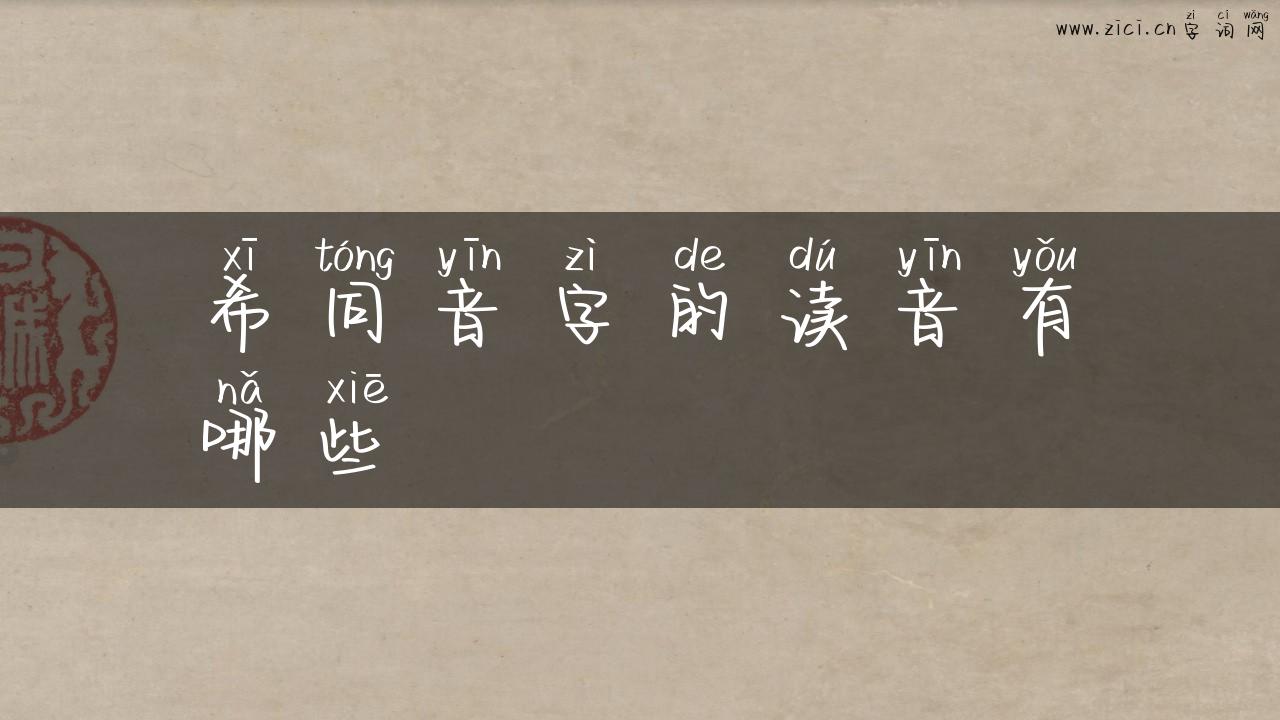 zì cí wǎng
www.zici.cn字词网
xī tóng yīn zì de dú yīn yǒu
希同音字的读音有
nǎ xiē
哪些